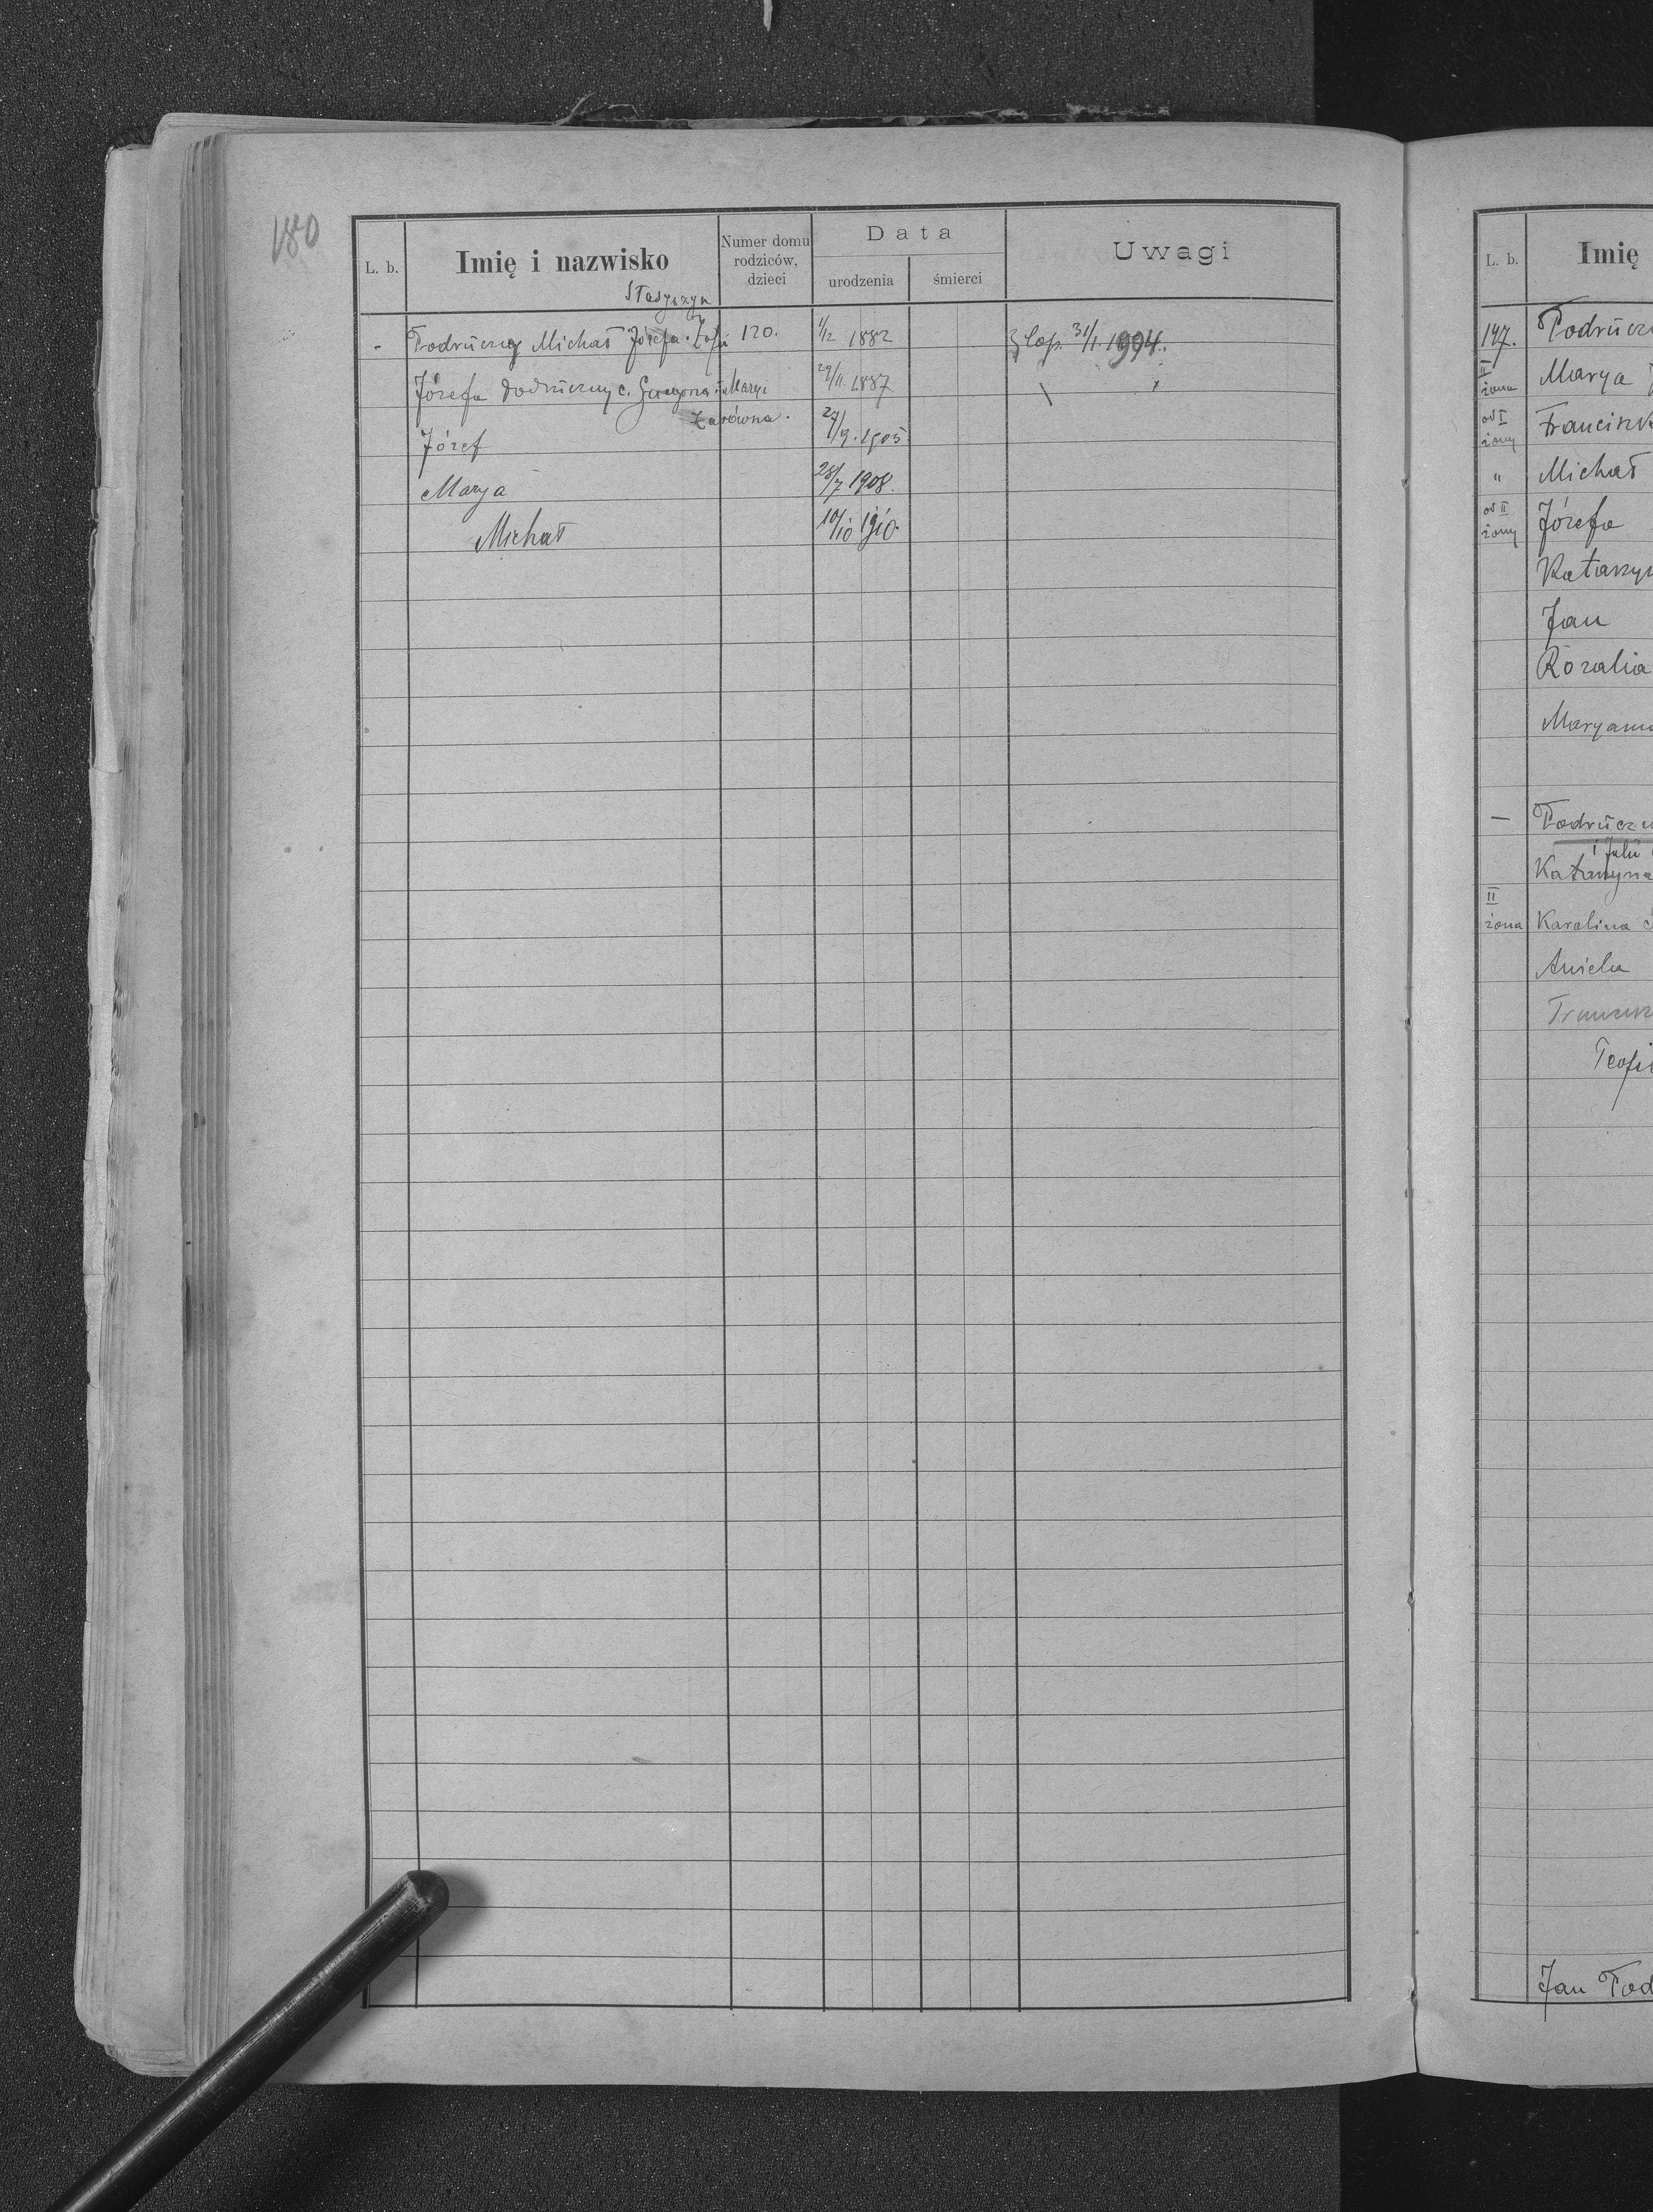 180
L. b.
Imię i nazwisko
Numer domu
rodziców,
dzieci
Data
urodzenia
śmierci
Uwagi
Stasyszyn
- Podruczny Michał Józefa i Zofii 120. 1/12 1882 31/1. 1904.
Józefa Podruczny c. Grzegorza i Maryi 29/11. 1887
Żurówna.
Józef 27/9. 1905
Marya 28/7 1908.
Michał 10/10 1910.
L. b.
Imię
147. Podruczn
II
żona
Marya
od I
żony
Franciszk
" Michał
od II
żony
Józefa
Katarzyn
Jan
Rozalia
Maryann
— Podruczn
i Julii
Katarzyna
II
żona
Karolina
Aniela
Teofil
Jan Pod